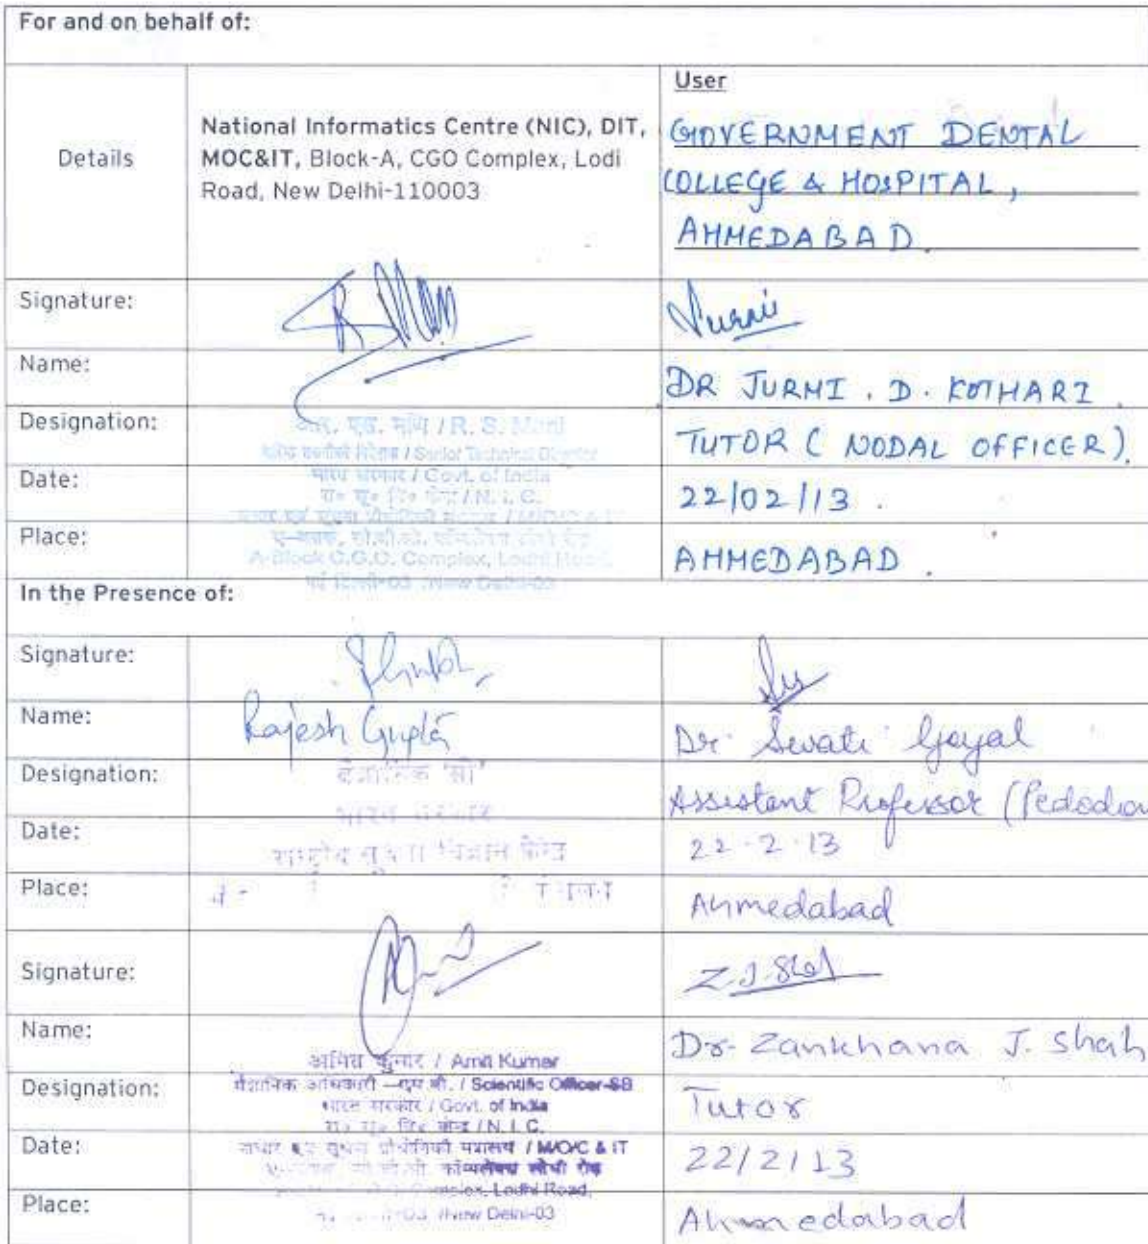 For and on behalf of:
Details
National Informatics Centre (NIC), DIT,
MOC&IT, Block-A, CGO Complex, Lodi
Road, New Delhi-110003
User
GOVERNMENT DENTAL
COLLEGE & HOSPITAL,
AHMEDABAD.
Signature:
Name:
DR JURMI . D. KOTHARI .
Designation:
आर. एस. मणि / R. S. Mani
/ Senior Technical Director
TUTOR ( NODAL OFFICER).
Date:
भारत सरकार / Govt. of India
/ N. I. C.
22/02/13 .
Place:
A-Block C.G.O. Complex, Lodhi Road,
नई दिल्ली-03 /New Delhi-03
AHMEDABAD .
In the Presence of:
Signature:
Name:
Rajesh Gupta
Dr. Swati Goyal
Designation:
वैज्ञानिक 'सी'
भारत सरकार
Assistant Professor (Pedodon
Date:
राष्ट्रीय सूचना विज्ञान केन्द्र
22.2.13
Place:
Ahmedabad
Signature:
Z.J.Shah
Name:
अमित कुमार / Amit Kumar
Dr. Zankhana J. Shah
Designation:
वैज्ञानिक अधिकारी —एस.बी. / Scientific Officer-SB
भारत सरकार / Govt. of India
/ N. I. C.
Tutor
Date:
/ M/O/C & IT
22/2/13
Place:
Complex, Lodhi Road,
/New Delhi-03
Ahmedabad